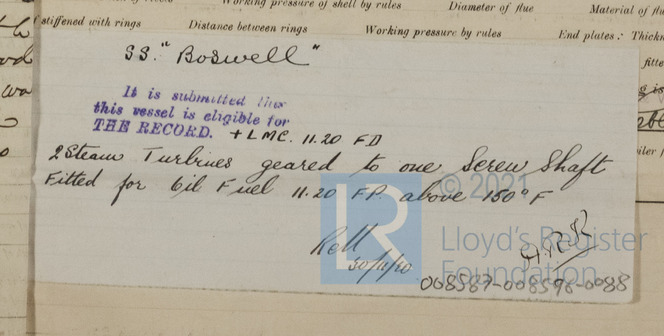 Working pressure of shell by rules Diameter of flue Material of flue
stiffened with rings Distance between rings Working pressure by rules End plates: Thickn
S.S. "Boswell"
fitte
It is submitted that
this vessel is eligible for
THE RECORD. + LMC. 11.20 FD
2 Steam Turbines geared to one Screw Shaft
Fitted for Oil Fuel 11.20 F.P. above 150° F
© 2021
Lloyd's Register
Foundation
30/11/20
008587-008598-0088